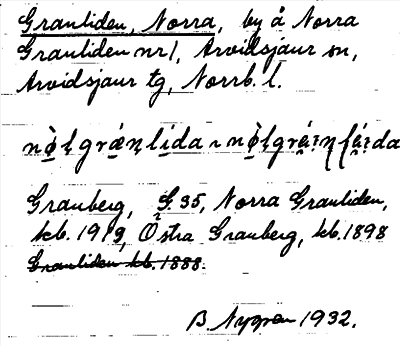 Granliden, Norra, by å Norra
Granliden nr 1, Arvidsjaur sn,
Arvidsjaur tg, Norrb. l.
Granberg, G 35, Norra Granliden,
kb. 1919, Östra Granberg, kb. 1898
Granliden kb. 1888.
B. Nygren 1932.